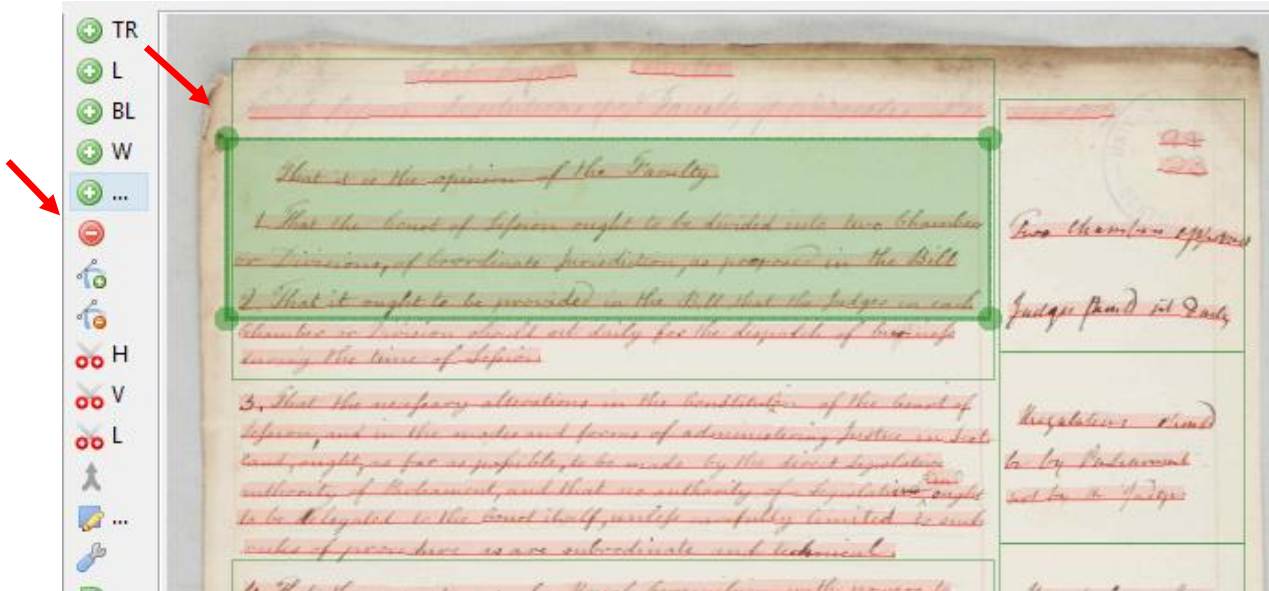 TR
L
BL
W
...
H
V
L
...
That it is the opinion of the Faculty
1. That the Court of Session ought to be divided into two Chambers
or Divisions, of Coordinate Jurisdiction, as proposed in the Bill
2 That it ought to be provided in the Bill that the Judges in each
Chamber or Division should sit daily for the dispatch of business
during the time of Session
3. That the necessary alterations in the Constitution of the Court of
Session, and in the modes and forms of administering Justice in Scot
land, ought, as far as possible, to be made by the direct Legislative
authority of Parliament, and that no authority of Legislative ought
to be delegated to the Court itself, unless carefully limited to such
rules of procedure as are subordinate and technical
Two Chambers approved
Judges sit Daily
Regulations
be by Parliament
not by the Judges